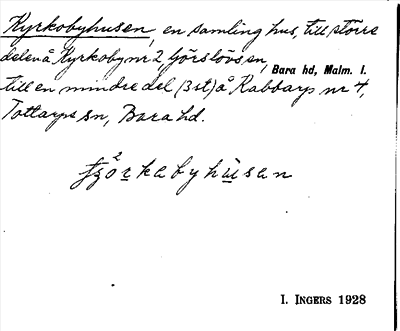 Kyrkobyhusen, en samling hus, till större
delen å Kyrkoby nr 2, Görslövs sn, Bara hd, Malm. l.
till en mindre del (3 st) å Kabbarps nr 4,
Tottarps sn, Bara hd.
I. INGERS 1928